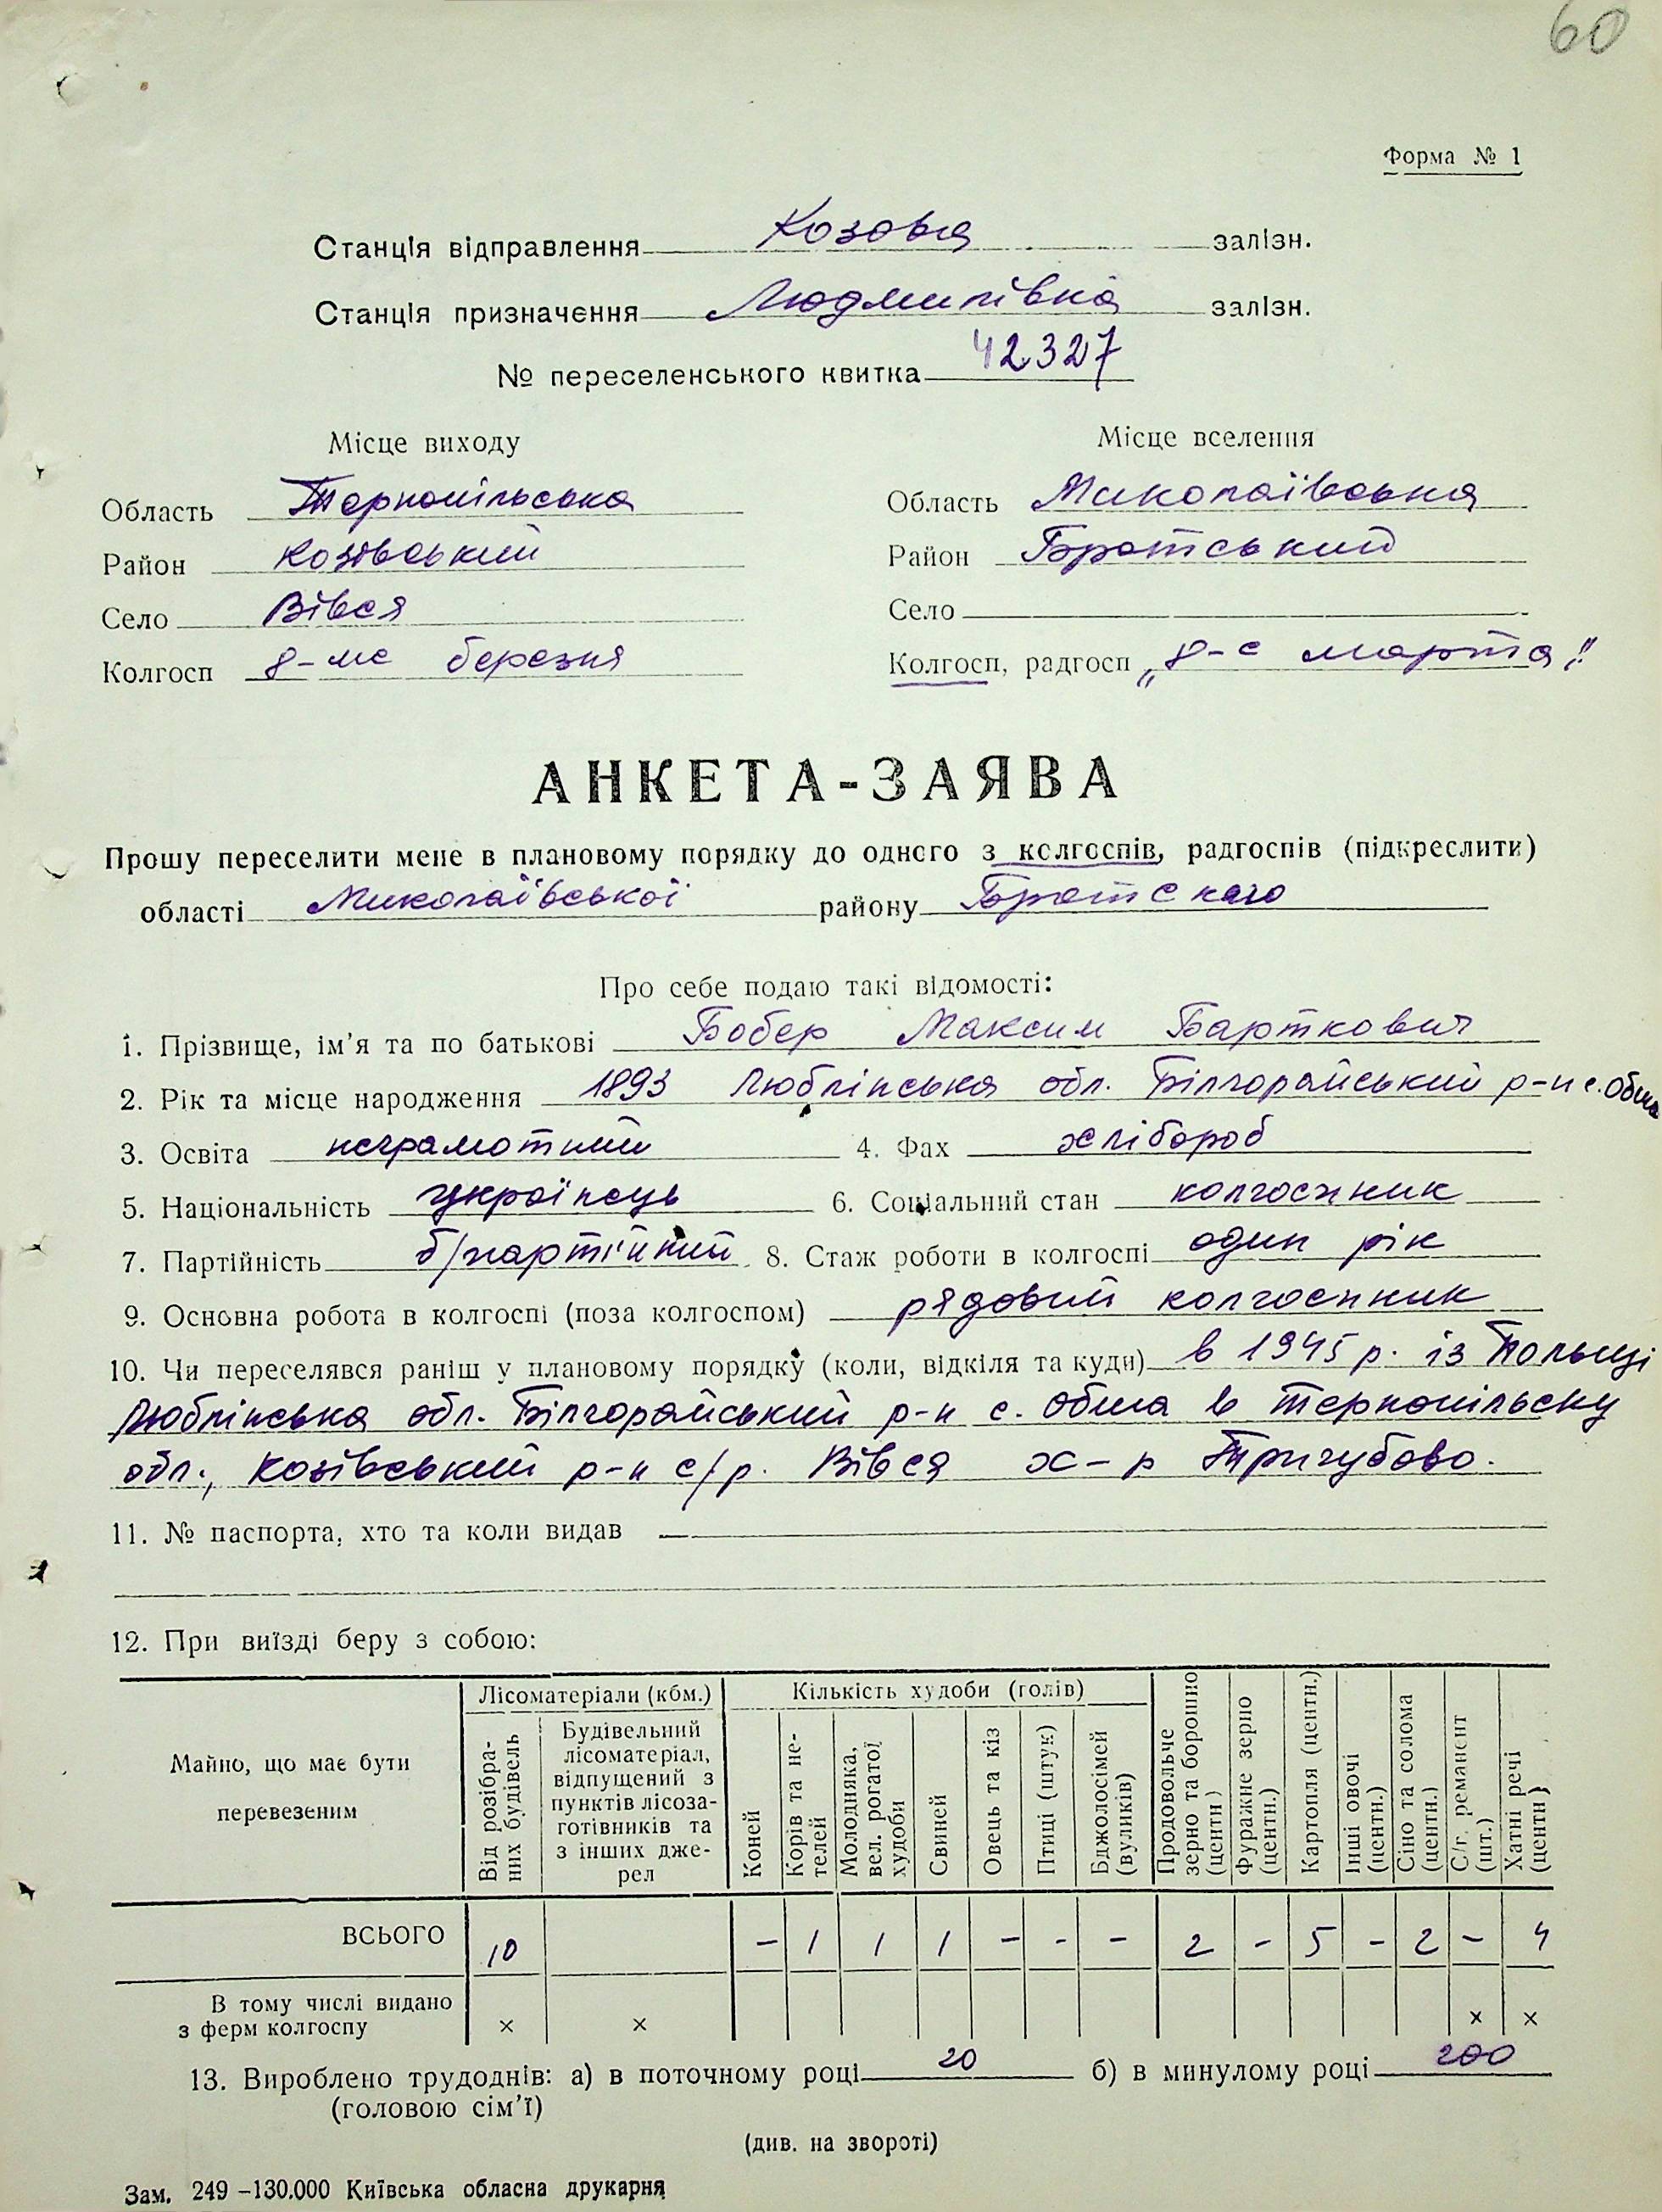 60
Форма № 1
Станція відправлення Козова залізн.
Станція призначення Людмилівка залізн.
№ переселенського квитка 42327
Місце виходу Місце вселення
Область Тернопільська Область Миколаївська
Район Козівський Район Братський
Село Вівся Село
Колгосп 8-ме березня Колгосп, радгосп „8-е марта"
АНКЕТА-ЗАЯВА
Прошу переселити мене в плановому порядку до одного з колгоспів, радгоспів (підкреслити)
області Миколаївської району Братского
Про себе подаю такі відомості:
1. Прізвище, ім'я та по батькові Бобер Максим Барткович
2. Рік та місце народження 1893 Люблінська обл. Білгорайський р-н с. Обша
3. Освіта неграмотний 4. Фах хлібороб
5. Національність українець 6. Соціальний стан колгоспник
7. Партійність б/партійний 8. Стаж роботи в колгоспі один рік
9. Основна робота в колгоспі (поза колгоспом) рядовий колгоспник
10. Чи переселявся раніш у плановому порядку (коли, відкіля та куди) в 1945 р. із Польщі
Люблінська обл. Білгорайський р-н с. Обша в Тернопільску
обл., Козівський р-н с/р. Вівся х-р Тригубово.
11. № паспорта, хто та коли видав —
12. При виїзді беру з собою:
Майно, що має бути перевезеним
Лісоматеріали (кбм.) Кількість худоби (голів)
Від розібраних будівель
Будівельний лісоматеріал, відпущений з пунктів лісозаготівників та з інших джерел
Коней
Корів та нетелей
Молодняка, вел. рогатої худоби
Свиней
Овець та кіз
Птиці (штук)
Бджолосімей (вуликів)
Продовольче зерно та борошно (центн)
Фуражне зерно (центн.)
Картопля (центн.)
Інші овочі (центн.)
Сіно та солома (центн.)
С/г. реманент (шт.)
Хатні речі (центн)
ВСЬОГО 10 – 1 1 1 – - – 2 – 5 – 2 – 4
В тому числі видано
з ферм колгоспу × × × ×
13. Вироблено трудоднів: а) в поточному році 20 б) в минулому році 200
(головою сім'ї)
(див. на звороті)
Зам. 249 –130.000 Київська обласна друкарня